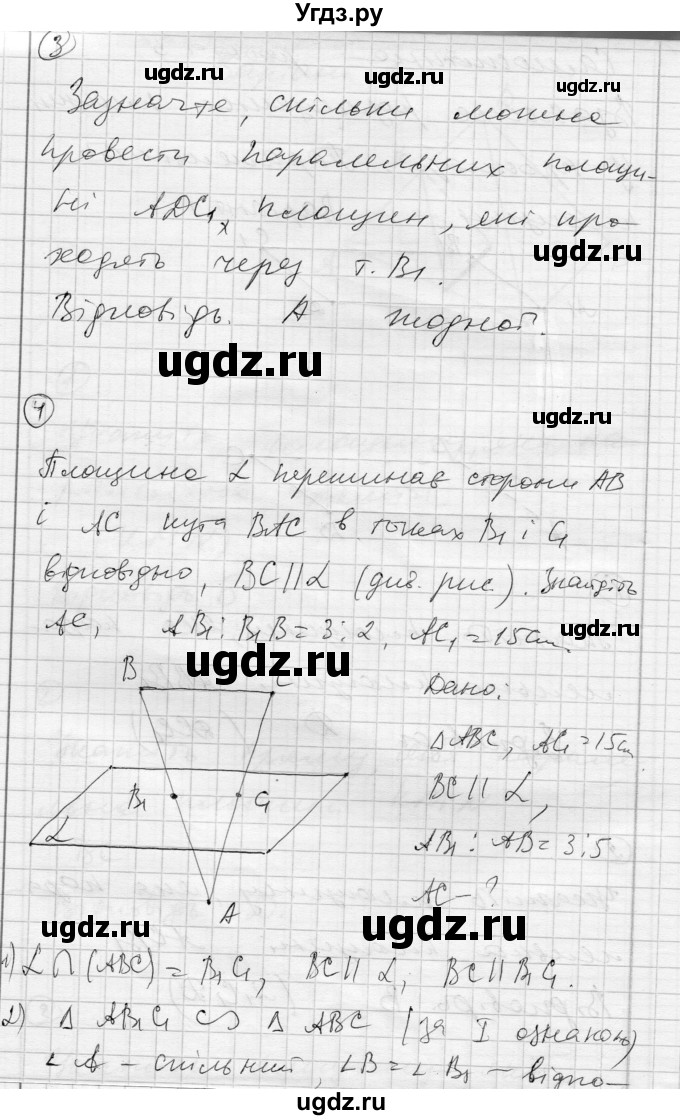 Угдз.ру
3
Зазначте, скільки можна
провести паралельних площи-
ні ADC₁ площин, які про-
ходять через т. B₁.
Відповідь. А жодної.
ugdz.ru
4
Площина α перетинає сторони AB
і AC кута BAC в точках B₁ і C₁
відповідно, BC || α (див. рис.). Знайдіть
AC, AB₁ : B₁B = 3 : 2, AC₁ = 15 см.
ugdz.ru
B C
Дано:
△ABC, AC₁ = 15 см
B₁ C₁ BC || α,
α AB₁ : AB = 3 : 5
ugdz.ru
AC - ?
A
ugdz.ru
1) α ∩ (ABC) = B₁C₁, BC || α, BC || B₁C₁.
2) △ AB₁C₁ ∽ △ ABC (за I ознакою)
∠A - спільний, ∠B = ∠B₁ - відпо-
ugdz.ru